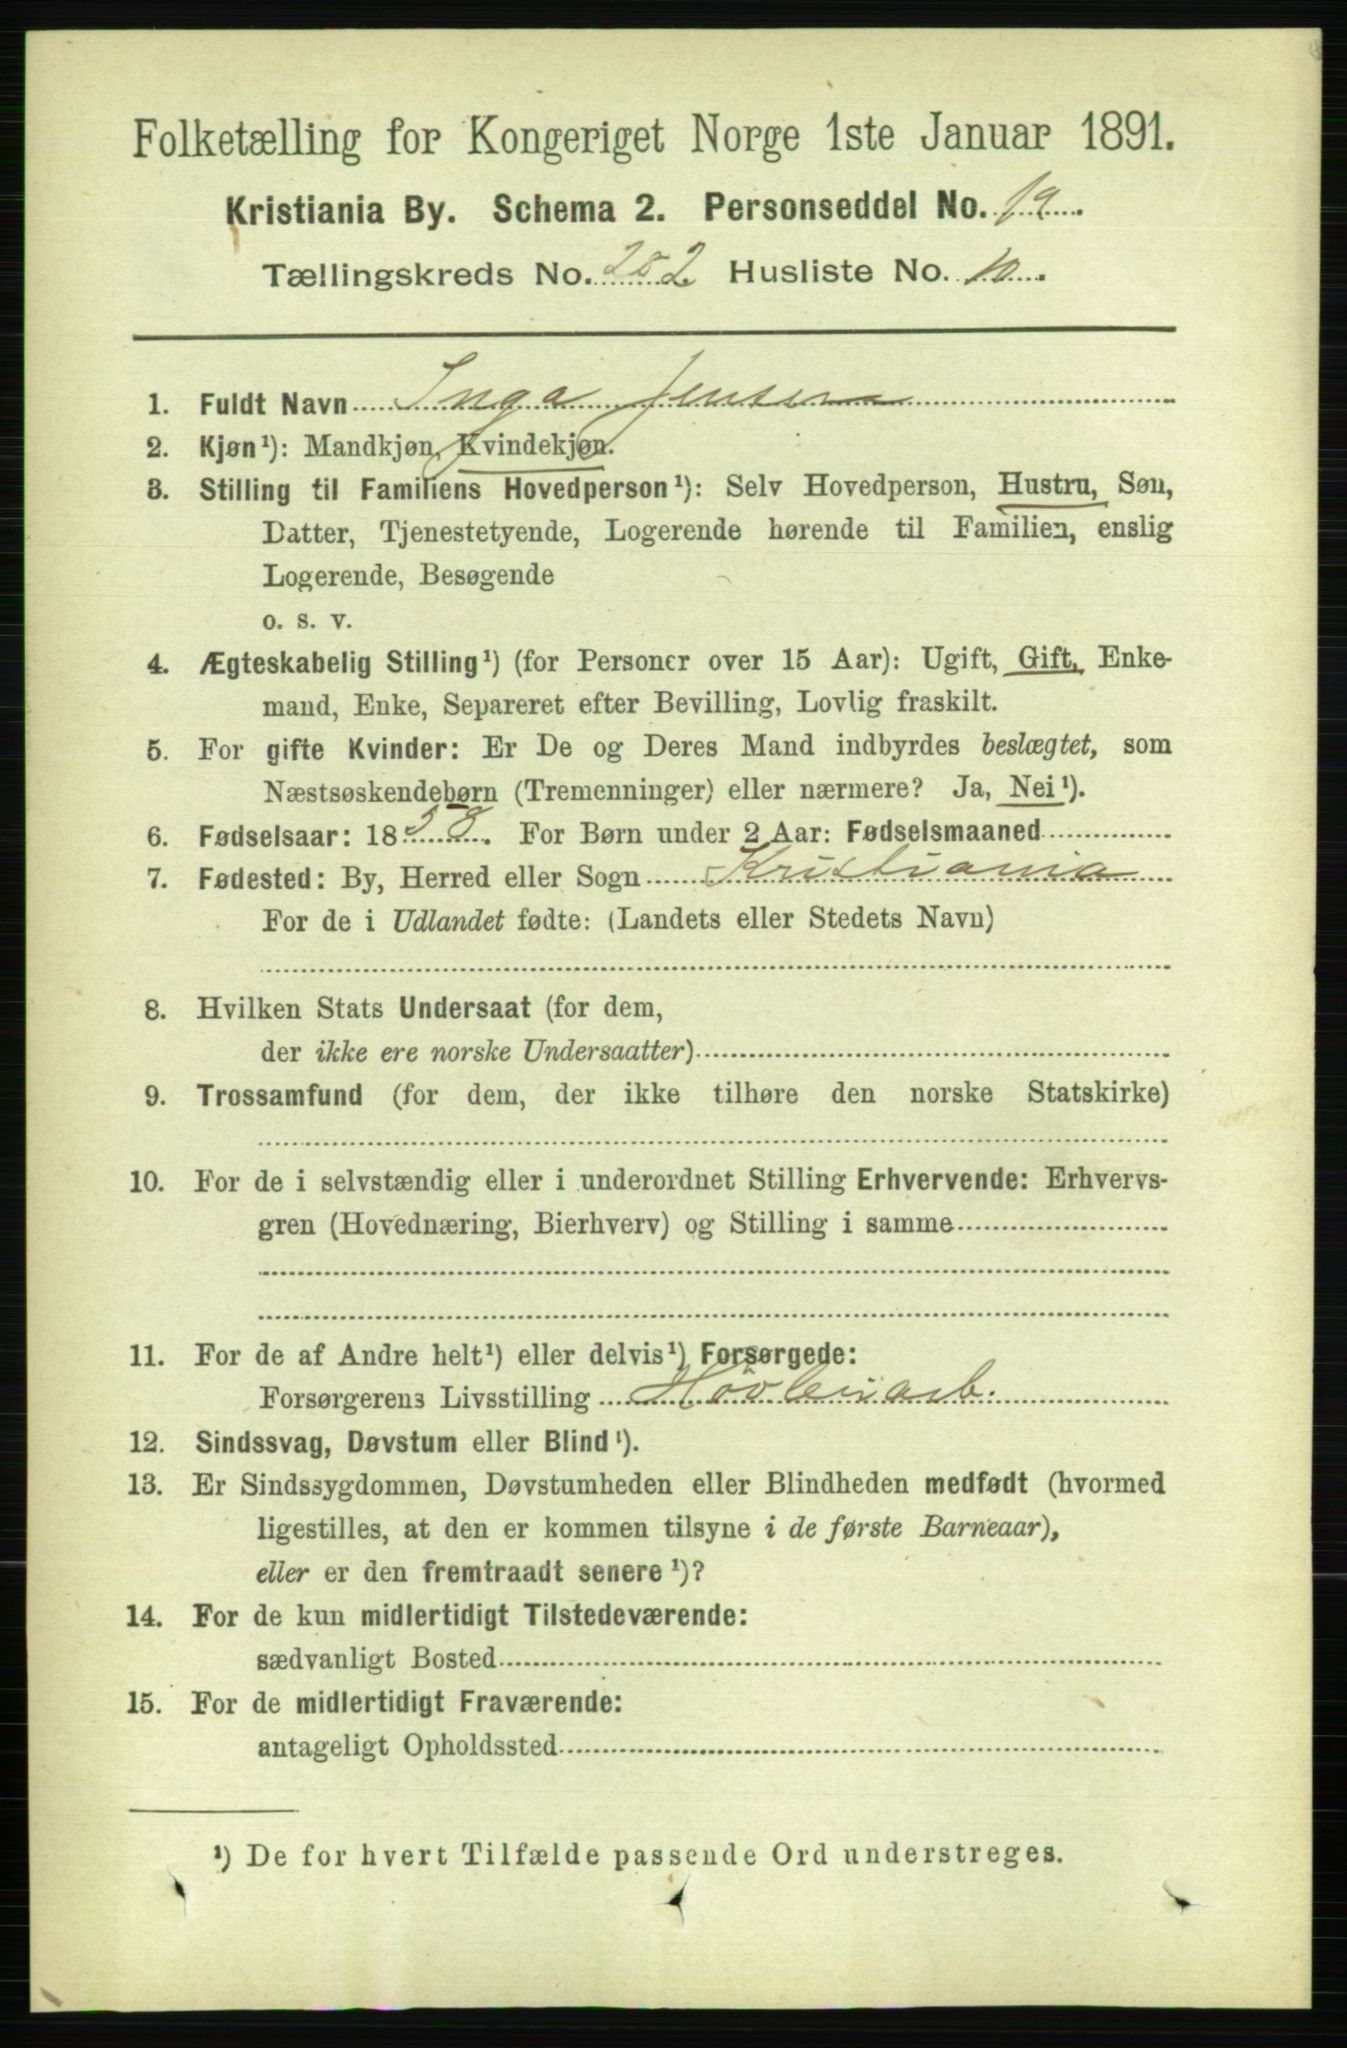 Folketælling for Kongeriget Norge 1ste Januar 1891.
Kristiania By. Schema 2. Personseddel No. 19.
Tællingskreds No. 252 Husliste No. 10.
1. Fuldt Navn Inga Jensen
2. Kjøn¹): Mandkjøn, Kvindekjøn.
3. Stilling til Familiens Hovedperson¹): Selv Hovedperson, Hustru, Søn,
Datter, Tjenestetyende, Logerende hørende til Familien, enslig
Logerende, Besøgende
o. s. v.
4. Ægteskabelig Stilling¹) (for Personer over 15 Aar): Ugift, Gift, Enke-
mand, Enke, Separeret efter Bevilling, Lovlig fraskilt.
5. For gifte Kvinder: Er De og Deres Mand indbyrdes beslægtet, som
Næstsøskendebørn (Tremenninger) eller nærmere? Ja, Nei¹).
6. Fødselsaar: 1858. For Børn under 2 Aar: Fødselsmaaned
7. Fødested: By, Herred eller Sogn Kristiania
For de i Udlandet fødte: (Landets eller Stedets Navn)
8. Hvilken Stats Undersaat (for dem,
der ikke ere norske Undersaatter)
9. Trossamfund (for dem, der ikke tilhøre den norske Statskirke)
10. For de i selvstændig eller i underordnet Stilling Erhvervende: Erhvervs-
gren (Hovednæring, Bierhverv) og Stilling i samme
11. For de af Andre helt¹) eller delvis¹) Forsørgede:
Forsørgerens Livsstilling Høvleriarb.
12. Sindssvag, Døvstum eller Blind¹).
13. Er Sindssygdommen, Døvstumheden eller Blindheden medfødt (hvormed
ligestilles, at den er kommen tilsyne i de første Barneaar),
eller er den fremtraadt senere¹)?
14. For de kun midlertidigt Tilstedeværende:
sædvanligt Bosted
15. For de midlertidigt Fraværende:
antageligt Opholdssted
¹) De for hvert Tilfælde passende Ord understreges.